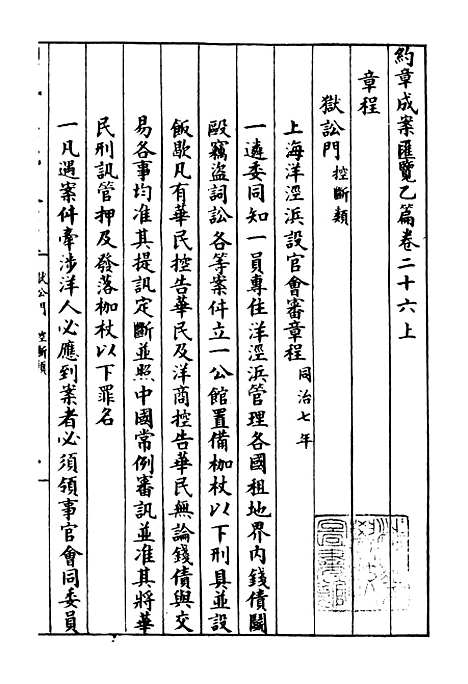 約章成案匯覽乙篇卷二十六上
章程
獄訟門 控斷類
上海洋涇浜設官會審章程 同治七年
一遴委同知一員專住洋涇浜管理各國租地界內錢債鬭
毆竊盜詞訟各等案件立一公館置備枷杖以下刑具並設
飯歇凡有華民控告華民及洋商控告華民無論錢債與交
易各事均准其提訊定斷並照中國常例審訊並准其將華
民刑訊管押及發落枷杖以下罪名
一凡遇案件牽涉洋人必應到案者必須領事官會同委員
獄訟門 控斷類 一